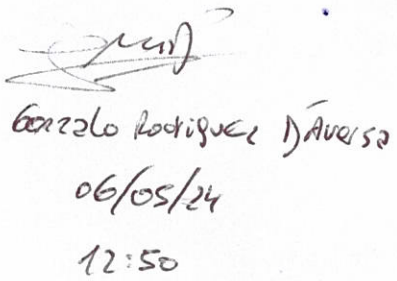 Gonzalo Rodriguez D'Aversa
06/05/24
12:50